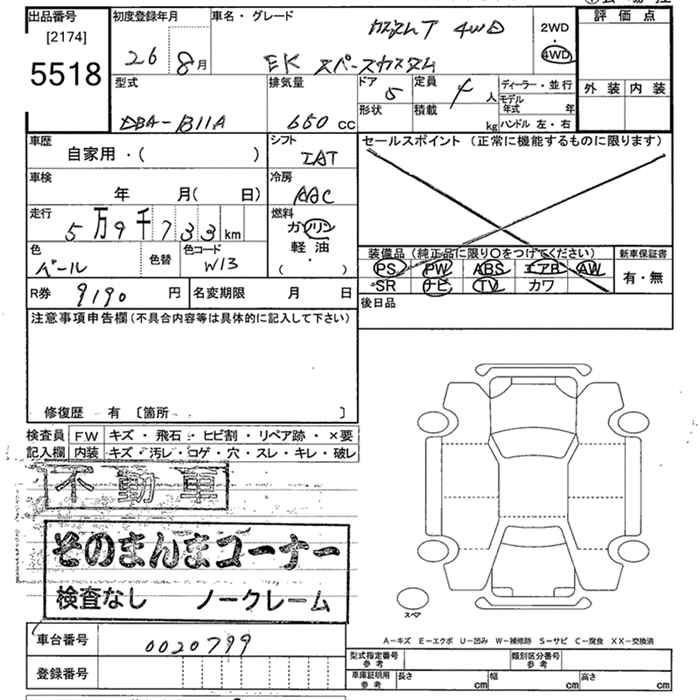 出品番号
[2174]
5518
初度登録年月
26 8月
車名・グレード
カスタムT 4WD
EK スペースカスタム
2WD
4WD
評価点
外装 内装
型式
DBA-B11A
排気量
660 cc
ドア
5
形状
定員
4 人
積載
kg
ディーラー・並行
モデル年式 年
ハンドル 左・右
車歴
自家用・( )
シフト
IAT
セールスポイント (正常に機能するものに限ります)
車検
年 月( 日)
冷房
AAC
走行
5万9千733km
燃料
ガソリン
軽油
( ・ )
色
パール
色替
色コード
W13
装備品(純正品に限り〇をつけてください)
PS PW ABS エアB AW
SR ナビ TV カワ
新車保証書
有・無
R券 9190 円
名変期限 月 日
後日品
注意事項申告欄(不具合内容等は具体的に記入して下さい)
修復歴 有 〔箇所 〕
検査員記入欄
FW キズ・飛石・ヒビ割・リペア跡・×要
内装 キズ・汚レ・コゲ・穴・スレ・キレ・破レ
不動車
そのまんまコーナー
検査なし ノークレーム
スペア
A-キズ E-エクボ U-凹み W-補修跡 S-サビ C-腐食 XX-交換済
車台番号
0020799
登録番号
型式指定番号
参考
類別区分番号
参考
車庫証明用
参考
長さ cm
幅 cm
高さ cm